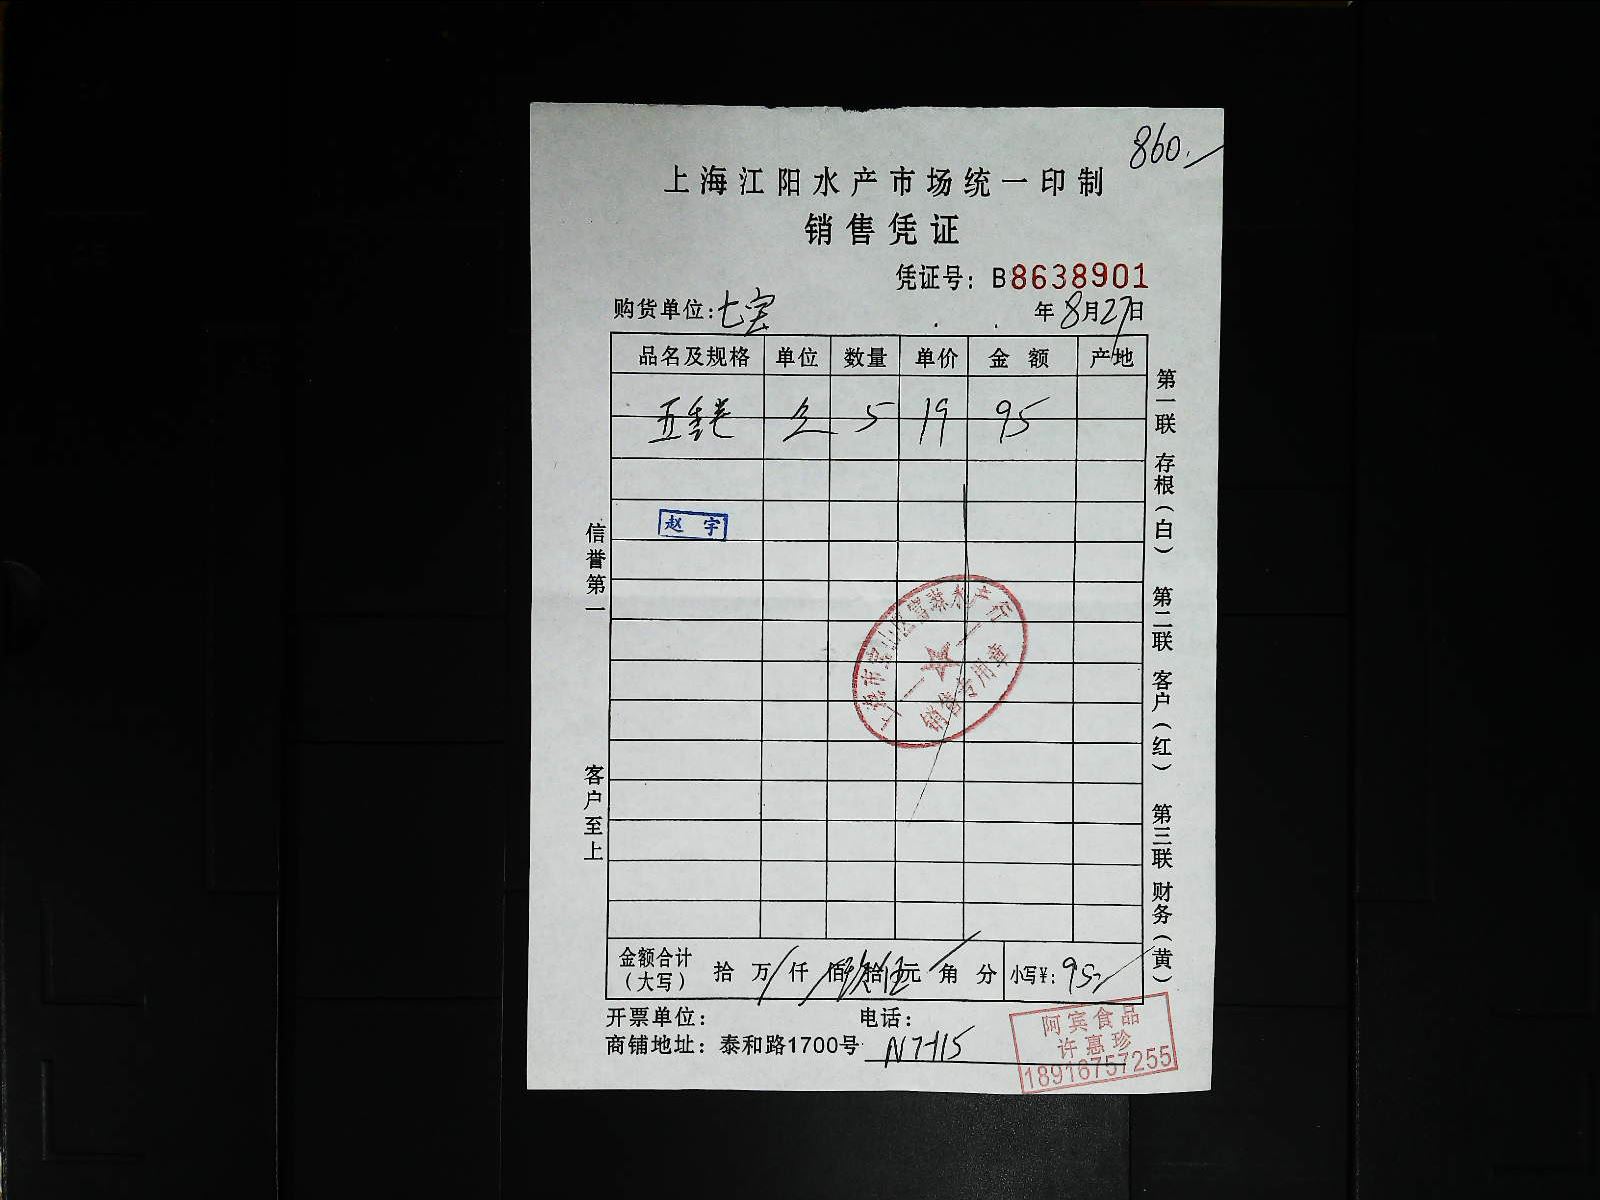 860.
上海江阳水产市场统一印制
销售凭证
凭证号：B8638901
购货单位：七宝
年8月27日
品名及规格 单位 数量 单价 金额 产地
五香 5 19 95
赵宇
上海市宝山区 水产行
销售专用章
信誉第一
客户至上
第一联 存根（白） 第二联 客户（红） 第三联 财务（黄）
金额合计（大写） 拾 万 仟 佰 玖 拾 伍 元 角 分 小写¥：95
开票单位： 电话：
商铺地址：泰和路1700号 N7-115
阿宾食品
许惠珍
18916757255